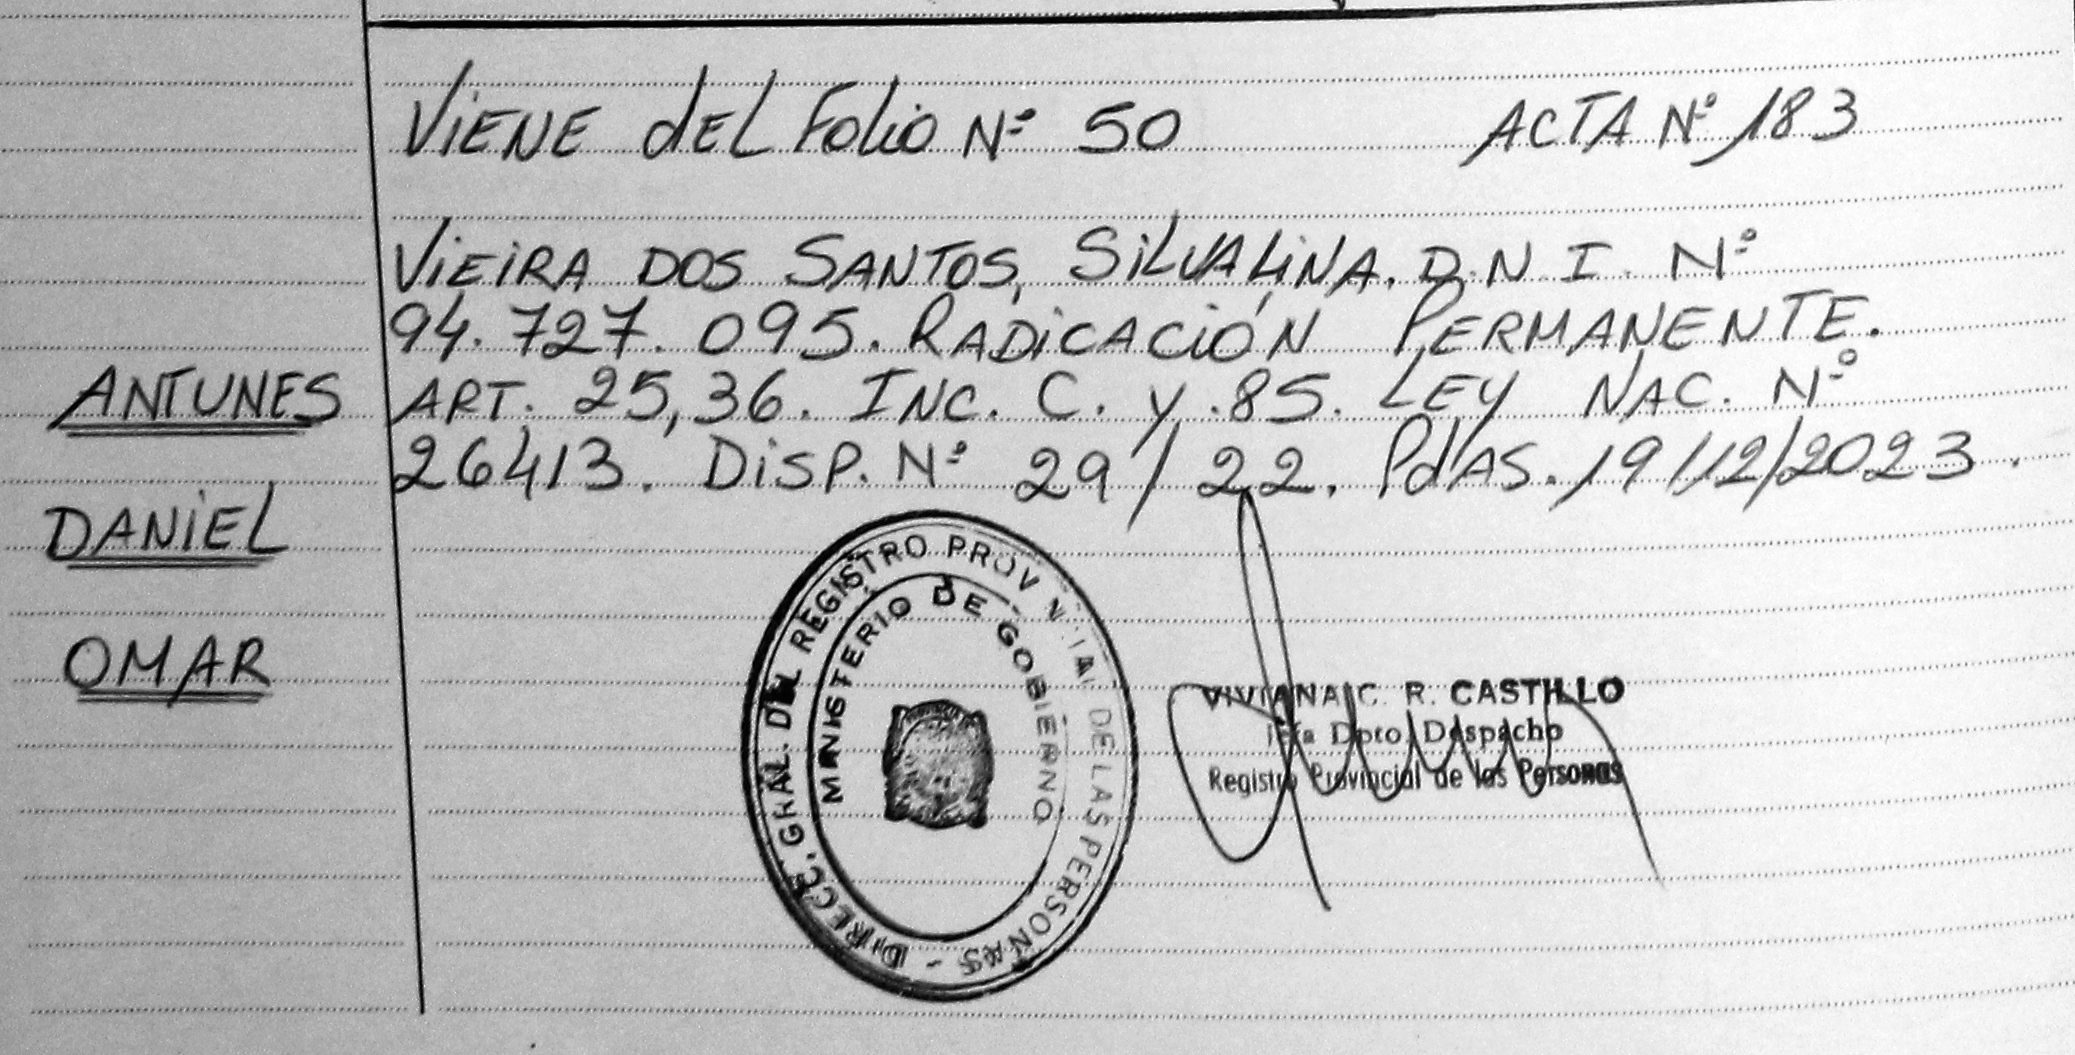 VIENE dEL Folio Nº 50 ACTA Nº 183
VIEIRA DOS SANTOS, SILVALINA. D.N I. Nº
94.727.095. RADICACIÓN PERMANENTE.
ANTUNES
ART. 25,36. INC. C. y .85. LEY NAC. Nº
26413. DISP. Nº 29/22. PdAS. 19/12/2023.
DANIEL
OMAR
DIRECC. GRAL. DEL REGISTRO PROVINCIAL DE LAS PERSONAS -
MINISTERIO DE GOBIERNO
VIVIANA C. R. CASTILLO
Jefa Dpto Despacho
Registro Provincial de las Personas